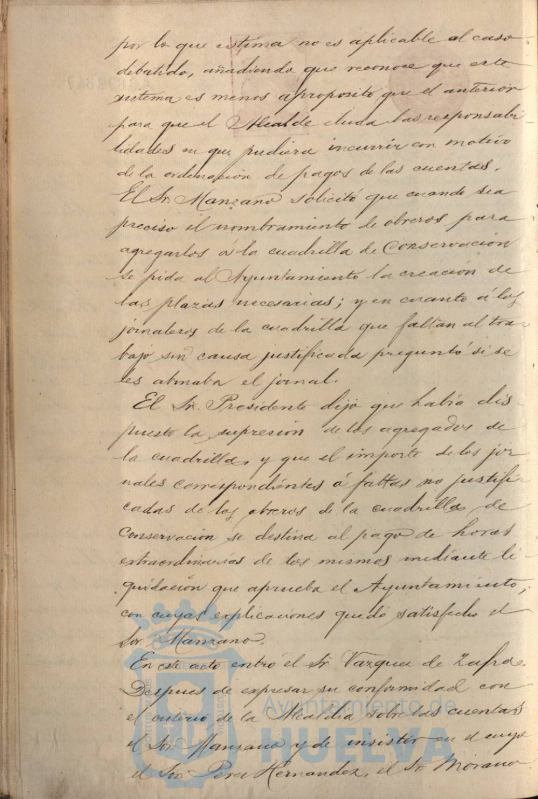 por lo que estima no es aplicable al caso
debatido, añadiendo que reconoce que este
sistema es menos aproposito que el anterior
para que el Alcalde eluda las responsabi-
lidades en que pudiera incurrir con motivo
de la ordenación de pagos de las cuentas.
El Sr. Manzano solicitó que cuando sea
preciso el nombramiento de obreros para
agregarlos á la cuadrilla de Conservación
se pida al Ayuntamiento la creación de
las plazas necesarias; y en cuanto á los
jornaleros de la cuadrilla que faltan al tra-
bajo sin causa justificada preguntó si se
les abonaba el jornal.
El Sr. Presidente dijo que había dis-
puesto la supresión de los agregados de
la cuadrilla, y que el importe de los jor-
nales correspondientes á faltas no justifi-
cadas de los obreros de la cuadrilla de
Conservación se destina al pago de horas
extraordinarias de los mismos mediante li-
quidación que aprueba el Ayuntamiento;
con cuyas explicaciones quedó satisfecho el
Sor. Manzano.
En este acto entró el Sr. Vazquez de Zafra.
Despues de expresar su conformidad con
el criterio de la Alcaldía sobre las cuentas
el Sor. Manzano y de insistir en el suyo
el Sor. Perez Hernandez, el Sr. Morano
Ayuntamiento de
HUELVA